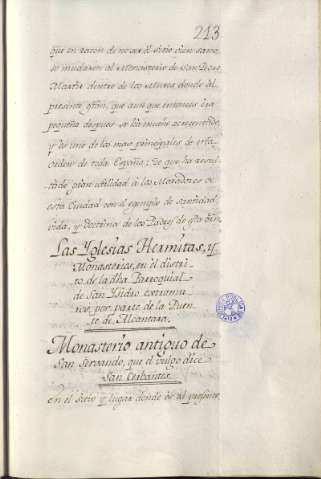 213
que en razon de no ser el sitio bien sano,
se mudaron al Monasterio de San Pedro
Martir dentro de los muros donde al
presente estan, que aunque entonces era
pequeña despues se ha mucho acrecentado,
y es uno de los mas principales de esta
Orden de toda España; de que ha resul-
tado gran utilidad á los Moradores de
esta Ciudad con el egemplo de santidad,
vida, y doctrina de los Padres de esta
Las Yglesias Hermitas, y
Monasterios, en el distri-
to de la dha Parroquial
de San Ysidro extramu-
ros, por parte de la Puen-
te de Alcantara.
Monasterio antiguo de
San Servando, que el vulgo dice
San Cerbantes
en el sitio y lugar donde es al presente